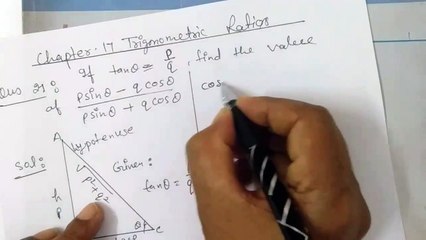 Chapter-17 Trigonometric Ratios
Ques 21: If tanθ = p/q, find the value
of psinθ - qcosθ / psinθ + qcosθ
cos
Sol:
A
hypotenuse
Given:
tanθ =
h
p
θ
c